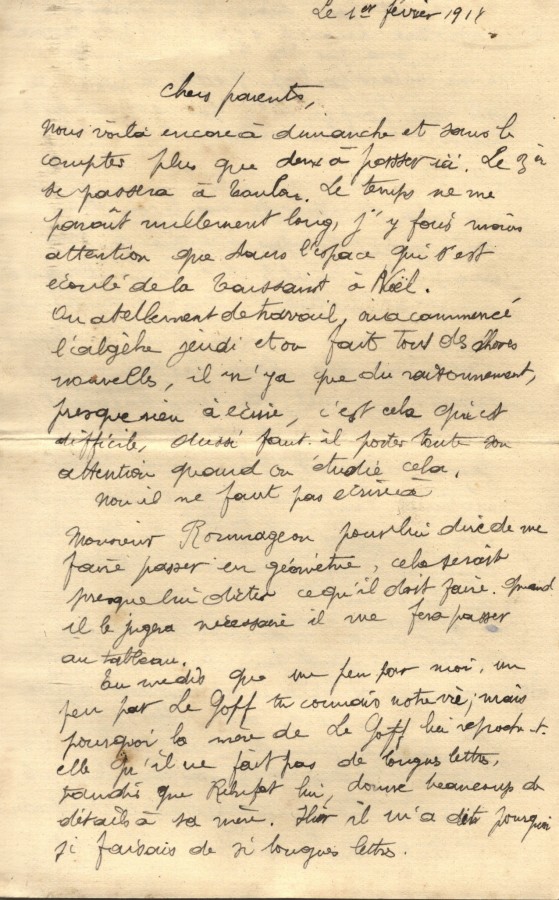 Le 1er février 1914
Chers parents,
Nous voilà encore à dimanche et sans le
compter plus que deux à passer ici. Le 3è
se passera à Toulon. Le temps ne me
paraît nullement long, j'y fais moins
attention que dans l'espace qui s'est
écoulé de la Toussaint à Noël.
On a tellement de travail, on a commencé
l'algèbre jeudi et on fait tous des choses
nouvelles, il n'y a que du raisonnement,
presque rien à écrire, c'est cela qui est
difficile, aussi faut-il porter toute son
attention quand on étudie cela.
Non il ne faut pas écrire à
Monsieur Roumageon pour lui dire de me
faire passer en géométrie, cela serait
presque lui dicter ce qu'il doit faire. Quand
il le jugera nécessaire il me fera passer
au tableau.
Tu me dis que un peu par moi, un
peu par Le Goff tu connais notre vie; mais
pourquoi la mère de Le Goff lui reproche-t-
elle qu'il ne fait pas de longues lettres,
tandis que lui, donne beaucoup de
détails à sa mère. Hier il m'a dit pourquoi
si faisais de si longues lettres.